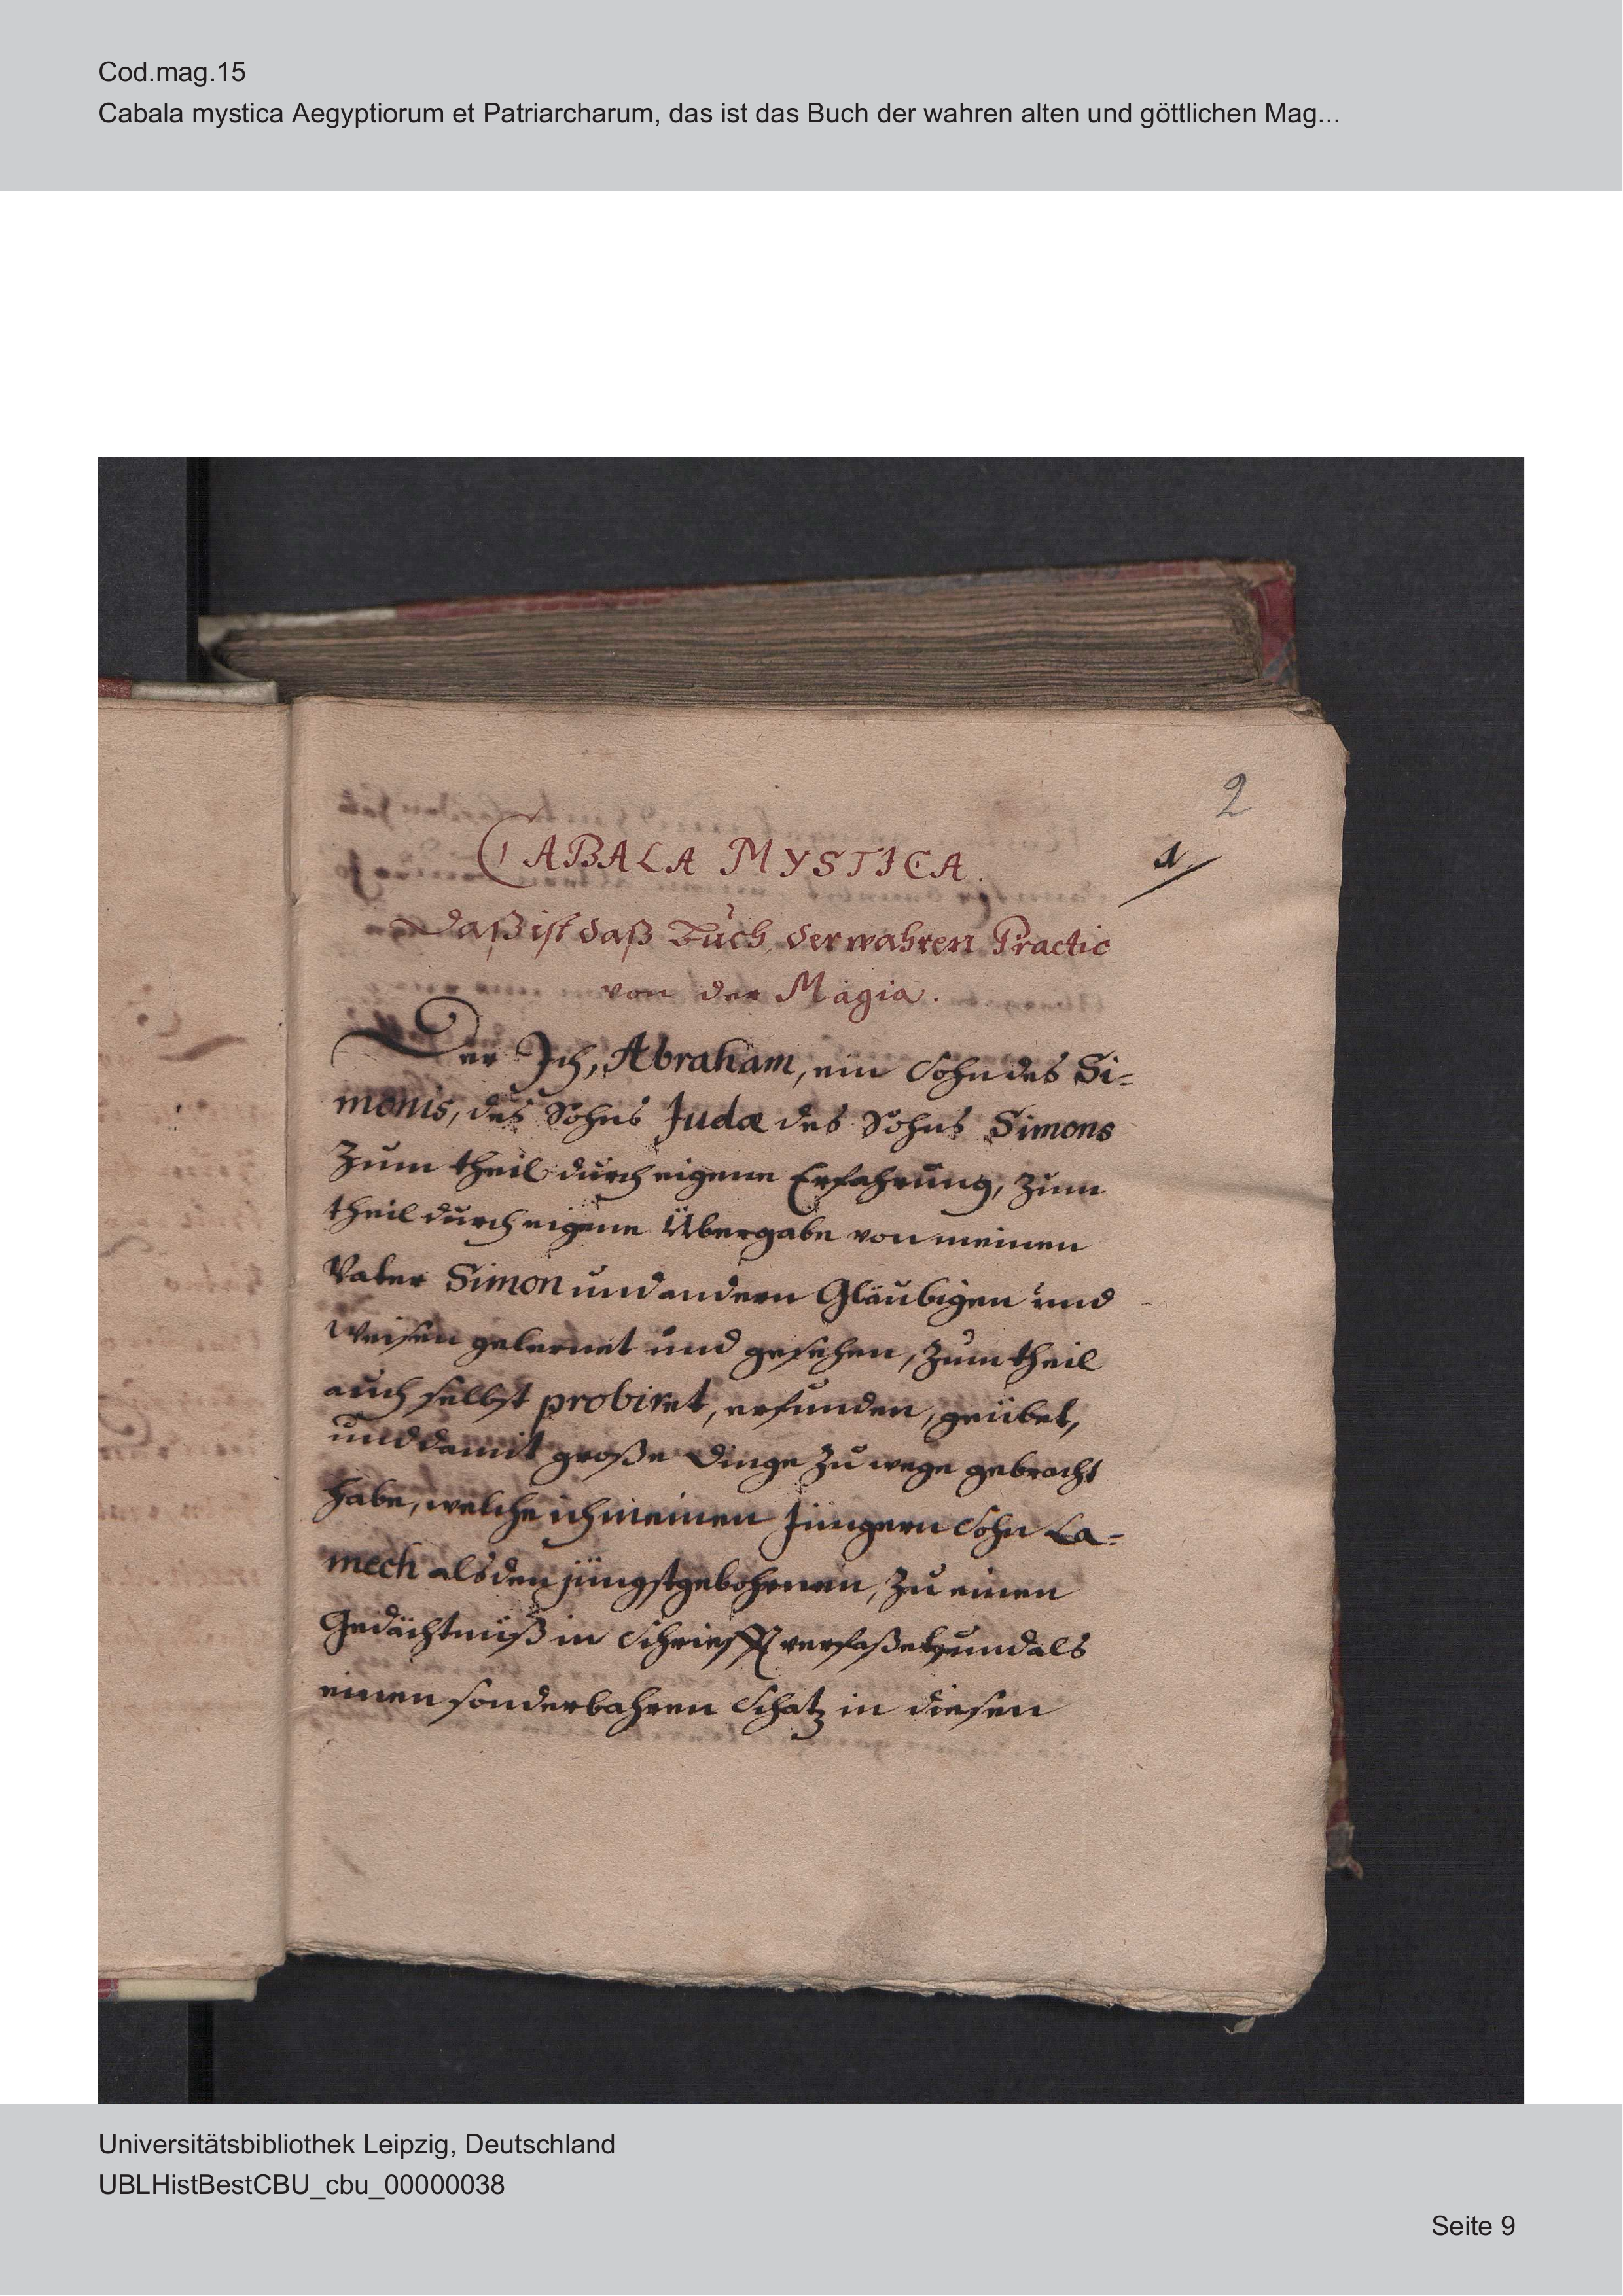 Cod.mag.15
Cabala mystica Aegyptiorum et Patriarcharum, das ist das Buch der wahren alten und göttlichen Mag...
2
1
CABALA MYSTICA.
Daß ist daß Buch der wahren Practic
von der Magia.
Der Ich, Abraham, ein Sohn des Si=
monis, des Sohns Judæ des Sohns Simons
Zum theil durch eigene Erfahrung, zum
theil durch eigene Übergabe von meinen
Vater Simon und andern Gläubigen und
Weisen gelernet und gesehen, zum theil
auch selbst probiret, erfunden, geübet,
und damit große Dinge zu wege gebracht
habe, welche ich meinen Jüngern Sohn La=
mech als den jüngstgebohrnen, zu einen
Gedächtnüß in Schriefft verfaßet und als
einen sonderbahren Schatz in diesen
Universitätsbibliothek Leipzig, Deutschland
UBLHistBestCBU_cbu_00000038
Seite 9